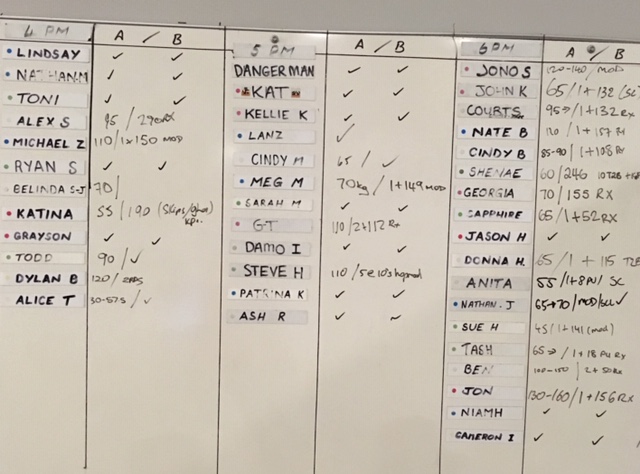 4 PM A / B
LINDSAY ✓ ✓
NATHAN.M ✓ ✓
TONI ✓ ✓
ALEX S 95 /
MICHAEL Z 110/1x150 MOD
RYAN S ✓ ✓
BELINDA S-J 70/
KATINA 55 / 190 (Skips/
GRAYSON ✓ ✓
TODD 90 / ✓
DYLAN B 120/
ALICE T 30-57.5 / ✓
5 PM A / B
DANGERMAN ✓ ✓
KAT ✓ ✓
KELLIE K ✓ ✓
LANZ ✓
CINDY M 65 / ✓
MEG M 70kg / 1+149 MOD
SARAH M ✓ ✓
GT 110/2+112 Rx
DAMO I ✓ ✓
STEVE H 110 /
PATRINA K ✓ ✓
ASH R ✓ ~
6PM A / B
JONO S 120-140/ MOD
JOHN K 65/1+132 (SC
COURTS 95 /1+132 Rx
NATE B 120 / 1+157 Rx
CINDY B 85-90 / 1+108 Rx
SHENAE 60/246
GEORGIA 70 / 155 RX
SAPPHIRE 65/1+52RX
JASON H ✓ ✓
DONNA H. 65 / 1 + 115
ANITA 55 / SC
NATHAN.J 65+70 / MOD/ ✓
SUE H 45/1+141 (mod)
TASH 65 / 1+18 Rx
BEN 100-150 / 2+50Rx
JON 130-160/1+156 Rx
NIAMH ✓ ✓
CAMERON I ✓ ✓